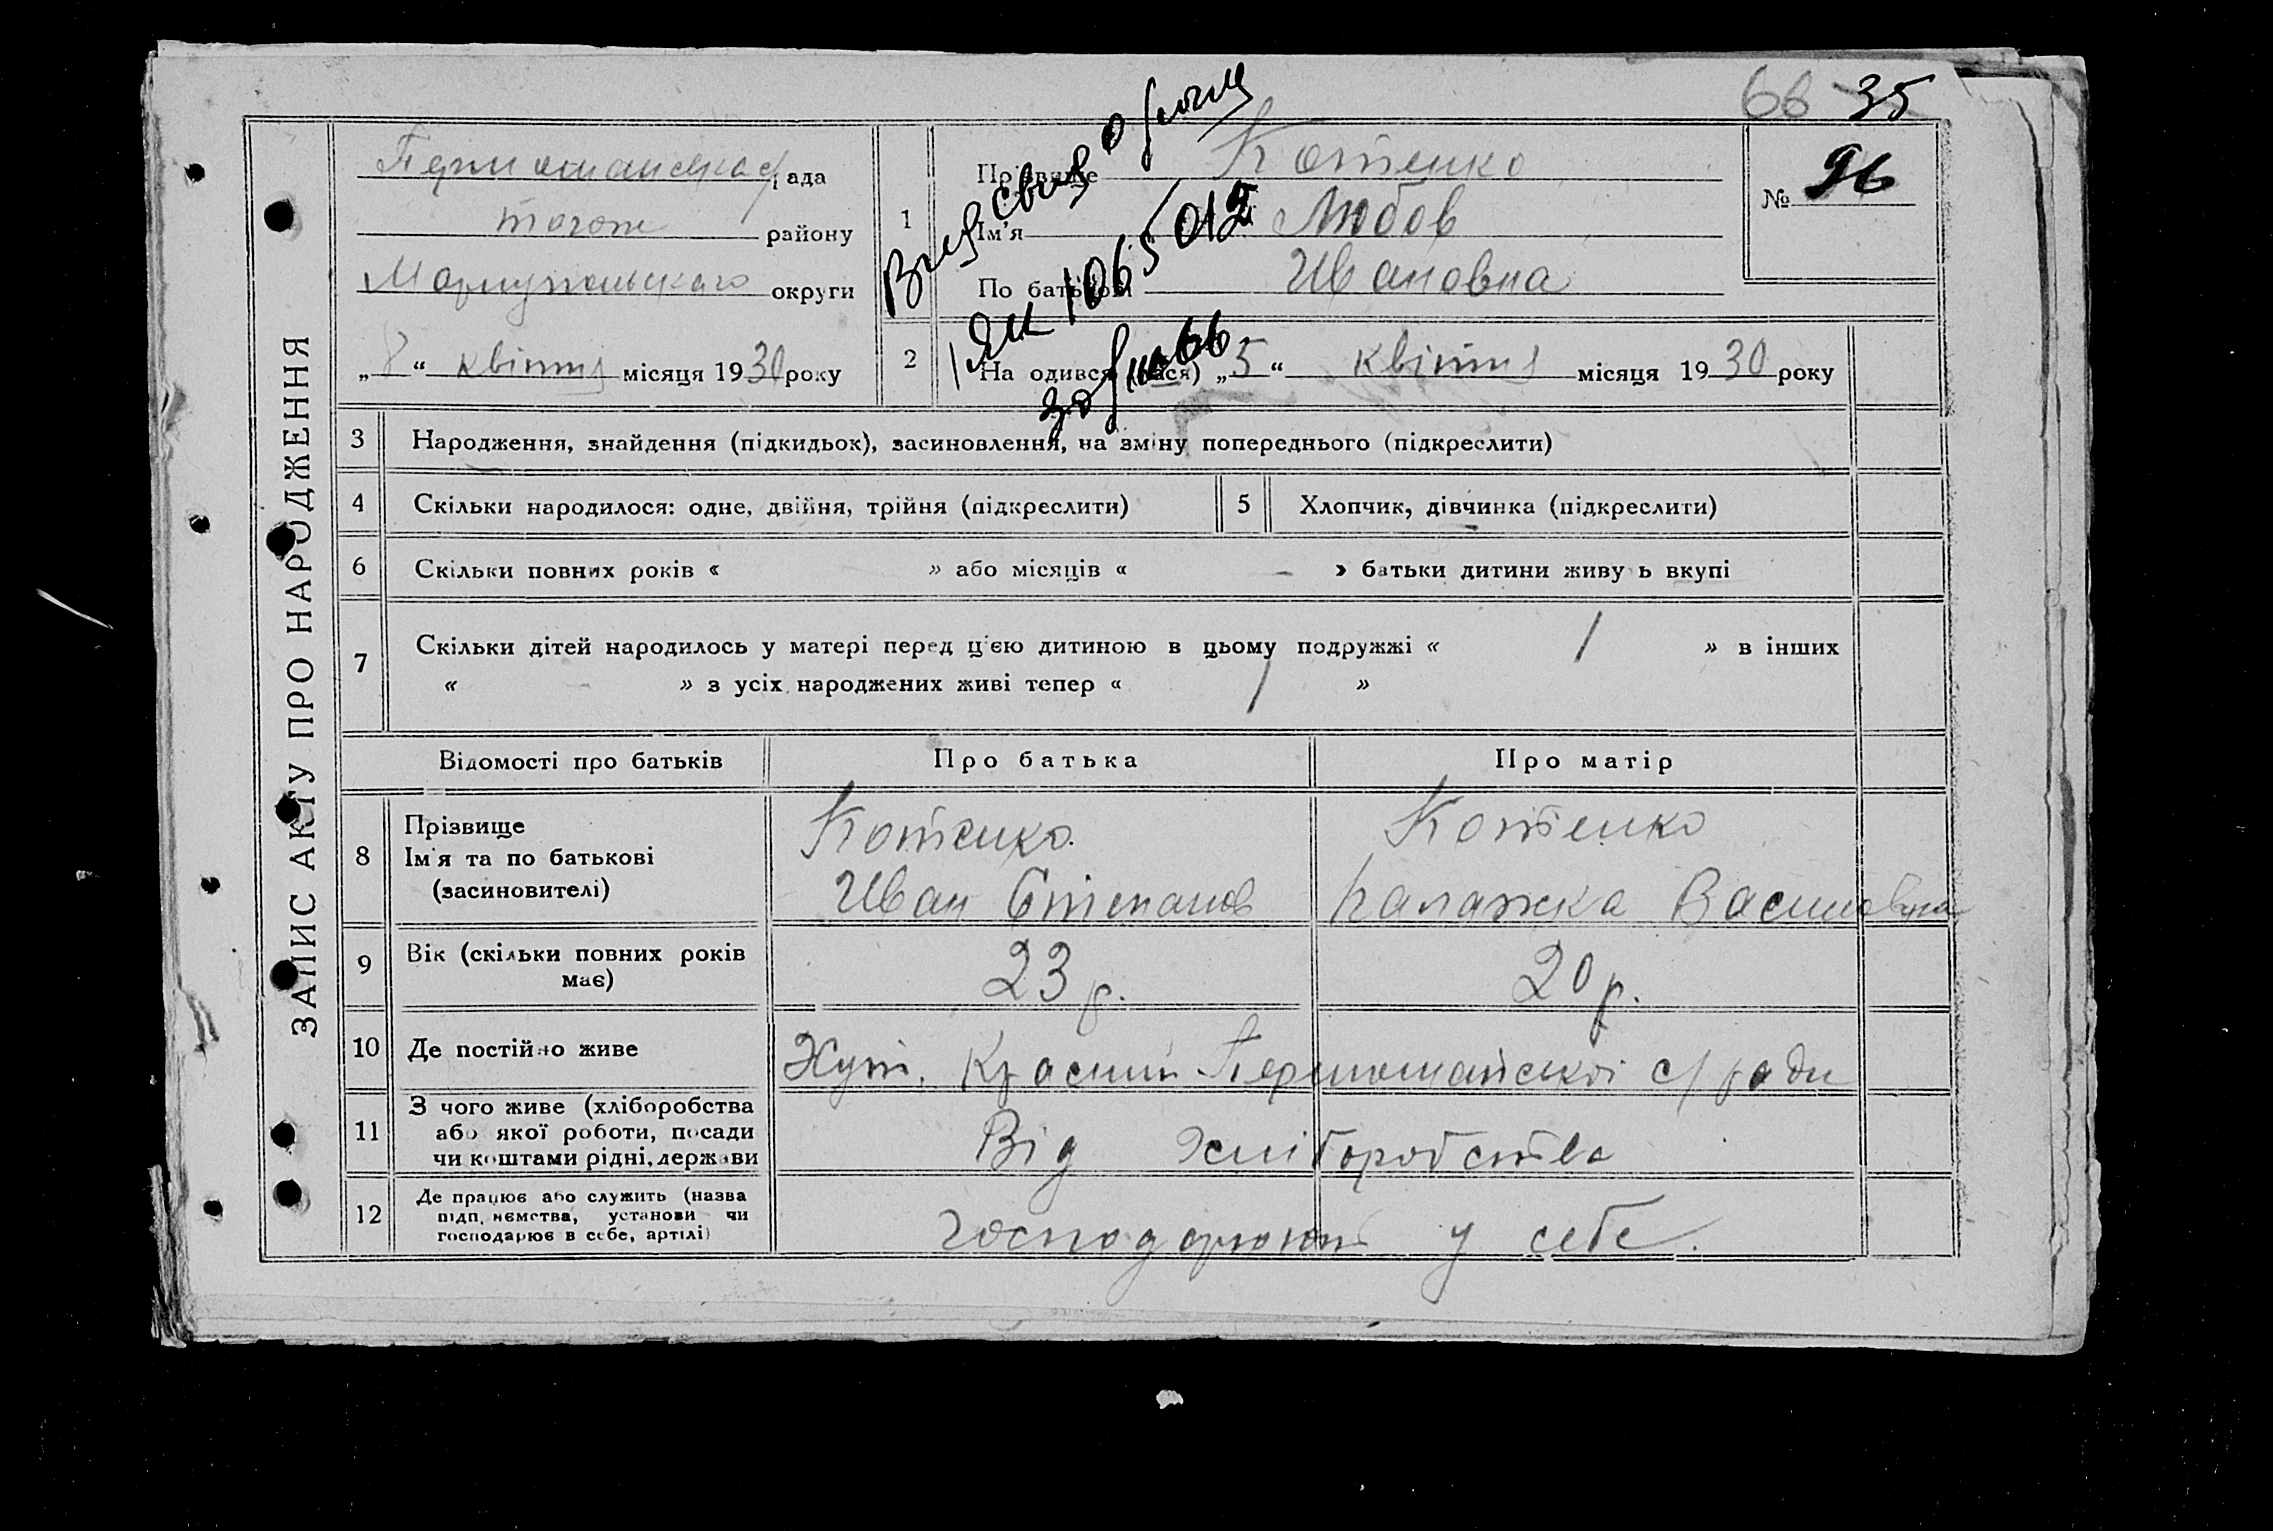 66 35
Першотравенська с/рада
тогож району
Мариупольского округи
„8“ квітня місяця 1930 року
1
Прізвище Котенко
Ім'я Любов
По батькові Ивановна
№ 96
ЯК 1065012
2
Народився (лася) „5“ квітня місяця 1930 року
ЗАПИС АКТУ ПРО НАРОДЖЕННЯ
3 Народження, знайдення (підкидьок), засиновлення, на зміну попереднього (підкреслити)
4 Скільки народилося: одне, двійня, трійня (підкреслити) 5 Хлопчик, дівчинка (підкреслити)
6 Скільки повних років « » або місяців « — » батьки дитини живуть вкупі
7 Скільки дітей народилось у матері перед цією дитиною в цьому подружжі « 1 » в інших
« — » з усіх народжених живі тепер « 1 »
Відомості про батьків Про батька Про матір
8 Прізвище Котенко Котенко
Ім'я та по батькові
(засиновителі) Иван Степанов Палажка Василовна
9 Вік (скільки повних років
має) 23 р. 20 р.
10 Де постійно живе Хут. Красний с/ради
11 З чого живе (хліборобства
або якої роботи, посади
чи коштами рідні, держави Від хліборобства
12 Де працює або служить (назва
підприємства, установи чи
господарює в себе, артілі) господарюють у себе.